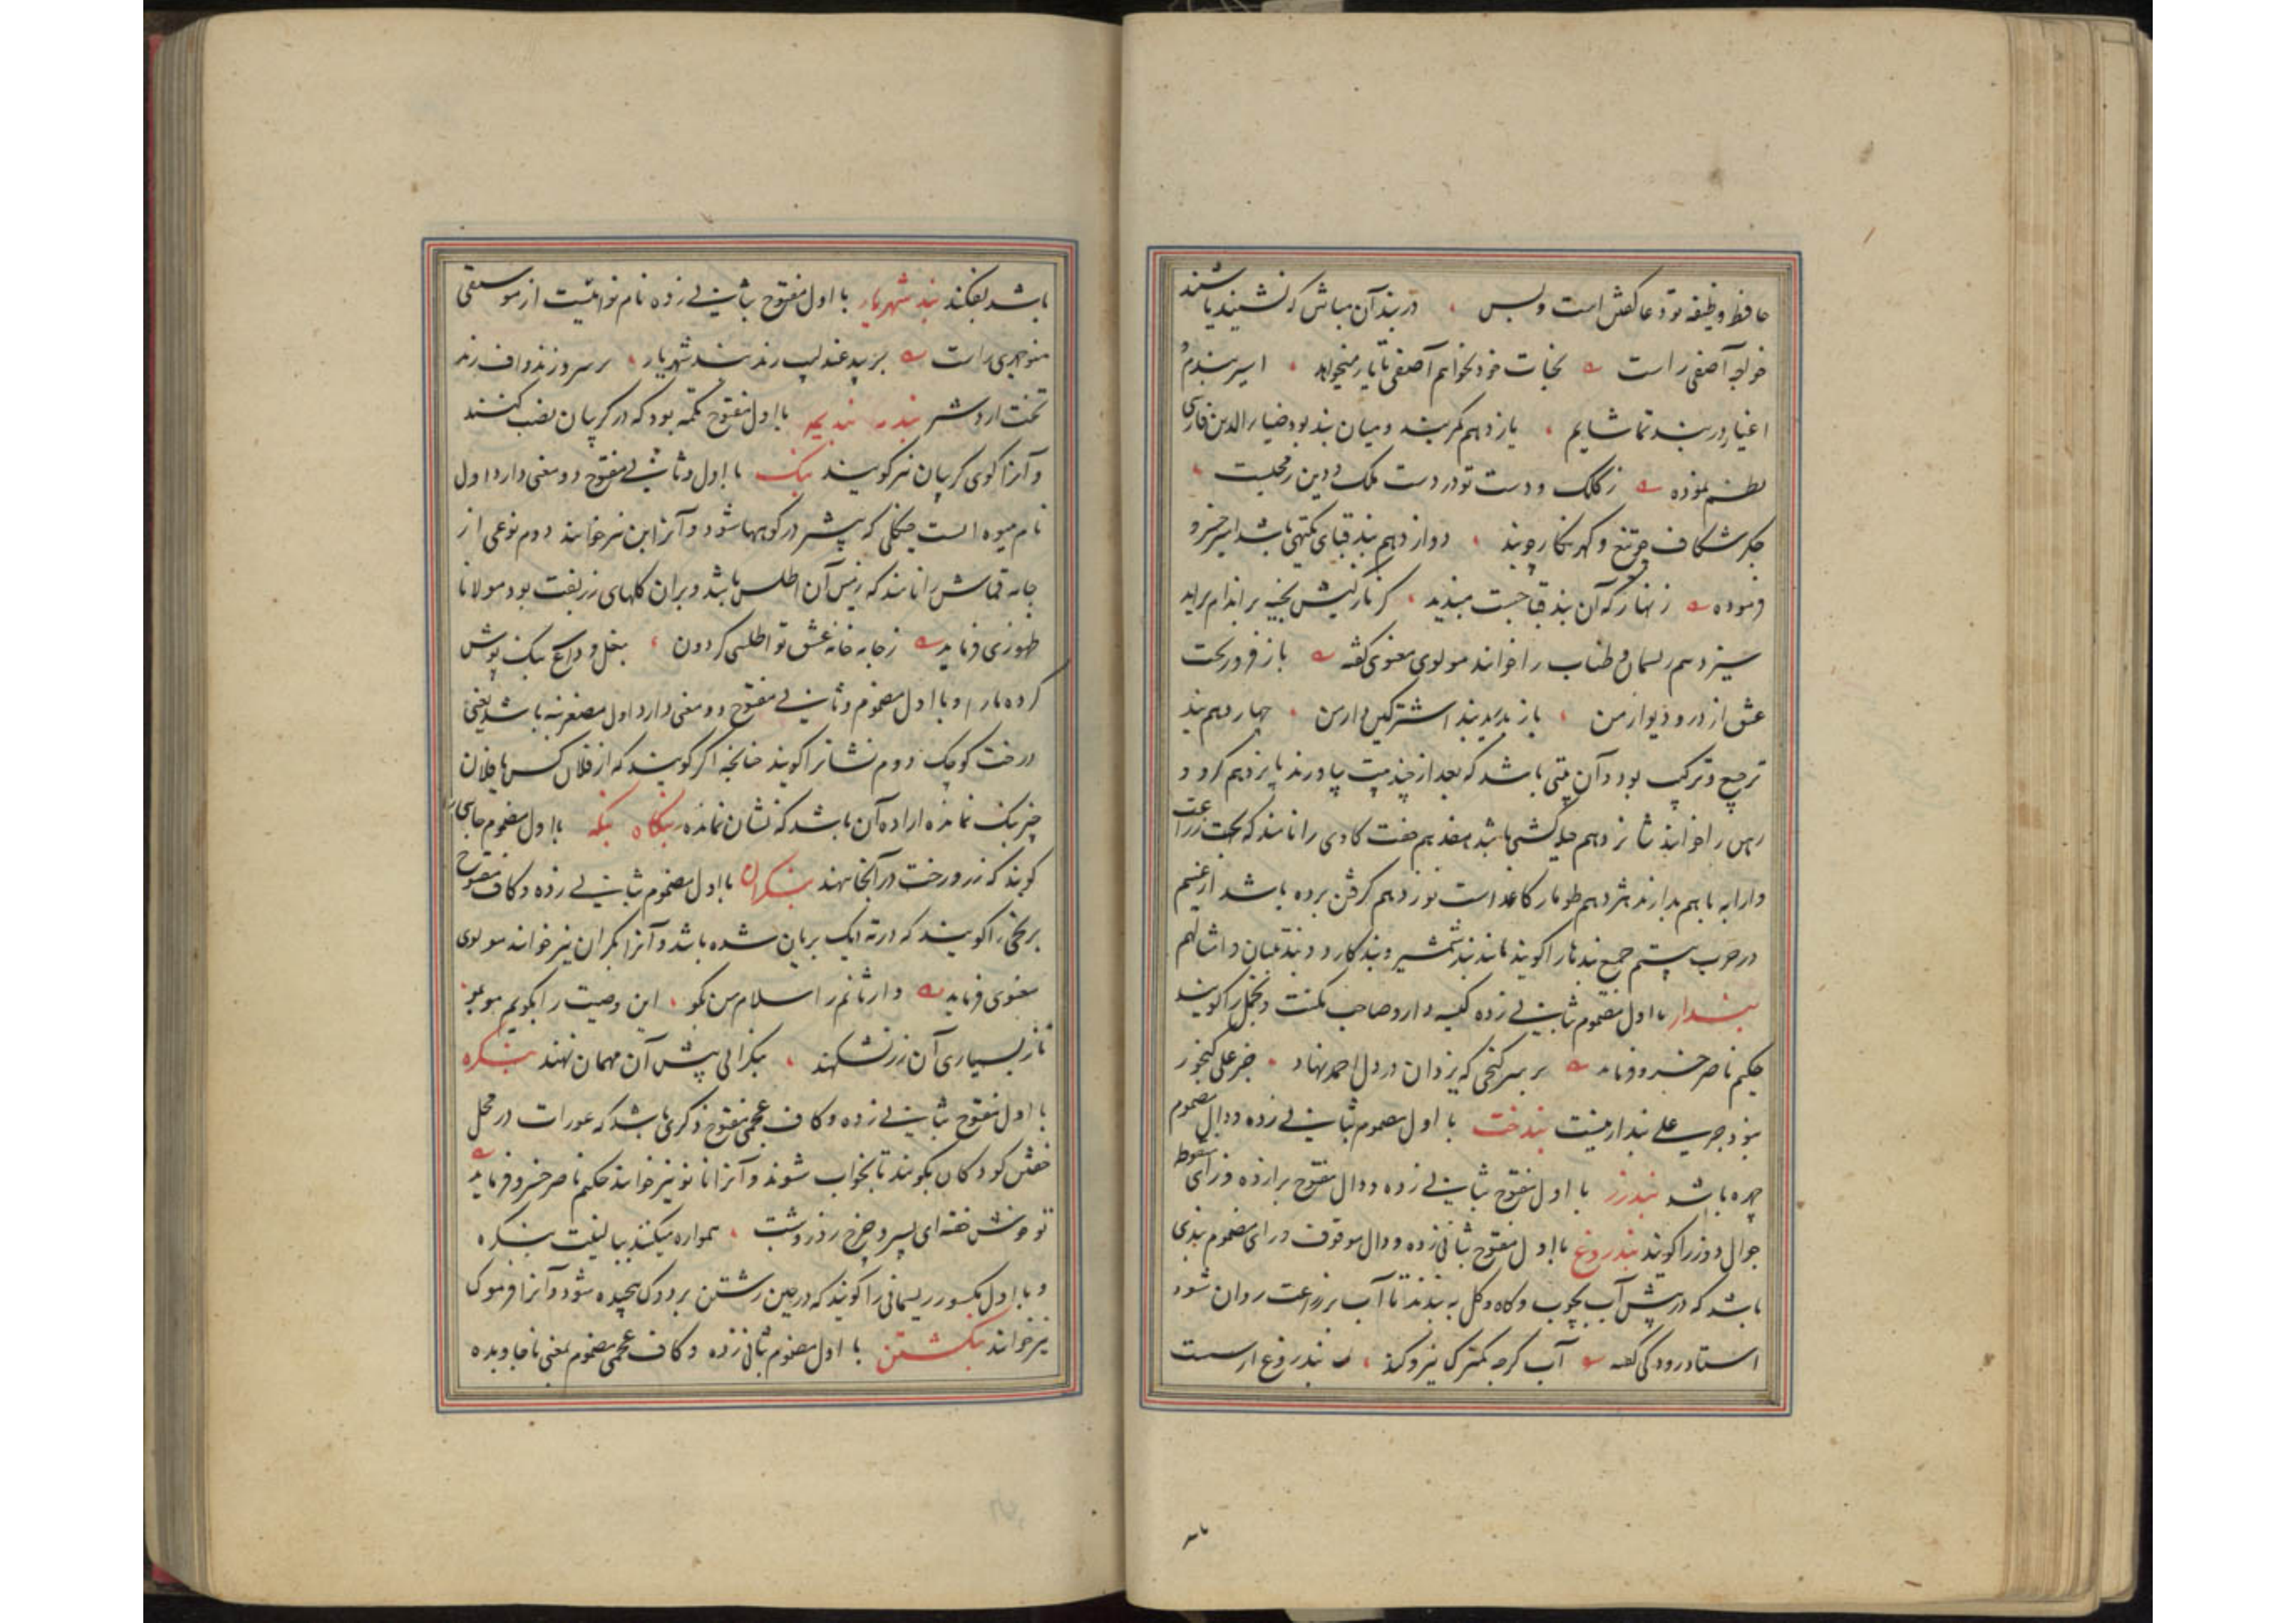 حافظ وظیفه تو دعا گفتن است و بس ، در بند آن مباش که نشنید یا شنید
خواجه آصفی راست نجات خود نخواهم آصفی تا یار میخواهد ، اسیر بندم و
اغیار در بند تماشایم ، یازدهم کمربند و میان بند بود ضیاء الدین فارسی
نظم نموده ز کلک و دست تو در دست ملک و دین
جگر شکاف چو تیغ و گهر نگار چو بند ، دوازدهم بند قبای یکتهی باشد امیر خسرو
فرموده زنهار که آن بند قبا چست مبندید ، کز نازکیش بخیه بر اندام برآید
سیزدهم ریسمان و طناب را خوانند مولوی معنوی گفته باز فرو ریخت
عشق از در و دیوار من ، باز بدرید بند اشتر کین دار من ، چهاردهم بند
ترجیع و ترکیب بود و آن بیتی باشد که بعد از چند بیت بیاورند پانزدهم گرو و
رهن را خوانند شانزدهم حیله کشتی باشد هفدهم جفت گاوی را نامند که بجهت زراعت
و ارابه با هم بدارند هژدهم طومار کاغذ است نوزدهم گرفتن برده باشد از غنیم
در حرب بیستم جمیع بندها را گویند مانند بند شمشیر و بند کارد و بند تنبان و امثالهم
بندار با اول مضموم بثانی زده کیسه دار و صاحب مکنت و تجمل را گویند
حکیم ناصر خسرو فرماید بر سر گنجی که یزدان در دل احمد نهاد ، جز علی گنجور
نبود جز علی بندار نیست بندخت با اول مضموم بثانی زده و دال مضموم
چهره باشد بندرز با اول مفتوح بثانی زده و دال مفتوح برا زده و زای منقوط
جوال دوز را گویند بندروغ با اول مفتوح بثانی زده و دال موقوف و رای مضموم بندی
باشد که در پیش آب بچوب و کاه و گل به بندند تا آب بزراعت روان شود
استاد رودکی گفته آب گرچه کمترک نیرو کند ، بندروغ ار سست
باشد بفکند بند شهریار با اول مفتوح بثانی زده نام نوائیست از موسیقی
منوچهری راست بر بید عندلیب زند بند شهریار ، بر سرو زند واف زند
تخت اردشیر بندمه بندیمه با اول مفتوح تکمه بود که در گریبان نصب کنند
و آنرا گوی گریبان نیز گویند بنک با اول و ثانی مفتوح دو معنی دارد اول
نام میوه ایست جنگلی که بیشتر در کوهها شود و آنرا بن نیز خوانند دوم نوعی از
جامه قماش را نامند که زمین آن اطلس باشد و بران گلهای زربفت بود مولانا
ظهوری فرماید ز جامه خانه عشق تو اطلس گردون ، بغل و داغ بنک پوش
کرده ما را و با اول مضموم و ثانی مفتوح دو معنی دارد اول مصغر بنه باشد یعنی
درخت کوچک دوم نشان را گویند چنانچه اگر گویند که از فلان کس یا فلان
چیز بنک نمانده اراده آن باشد که نشان نمانده بنگاه بنگه با اول مضموم جایی را
گویند که زر و رخت در آنجا نهند بنکران با اول مضموم بثانی زده و کاف مفتوح
برنجی را گویند که در ته دیگ بریان شده باشد و آنرا بکران نیز خوانند مولوی
معنوی فرماید وارثانم را سلام من بگو ، این وصیت را بگویم موبمو
تا ز بسیاری آن زر نشکهند ، بنکرانی پیش آن مهمان نهند بنگره
با اول مفتوح بثانی زده و کاف عجمی مفتوح ذکری باشد که عورات در محل
خفتن کودکان بگویند تا بخواب شوند و آنرا نانو نیز خوانند حکیم ناصر خسرو فرماید
تو خوش خفته ای پسر و چرخ روز و شب ، همواره میکند ببالینت بنگره
و با اول مکسور ریسمانی را گویند که در حین رشتن بر دوک پیچیده شود و آنرا فرموک
نیز خوانند بنگشتن با اول مضموم بثانی زده و کاف عجمی مضموم بمعنی ناجاویده